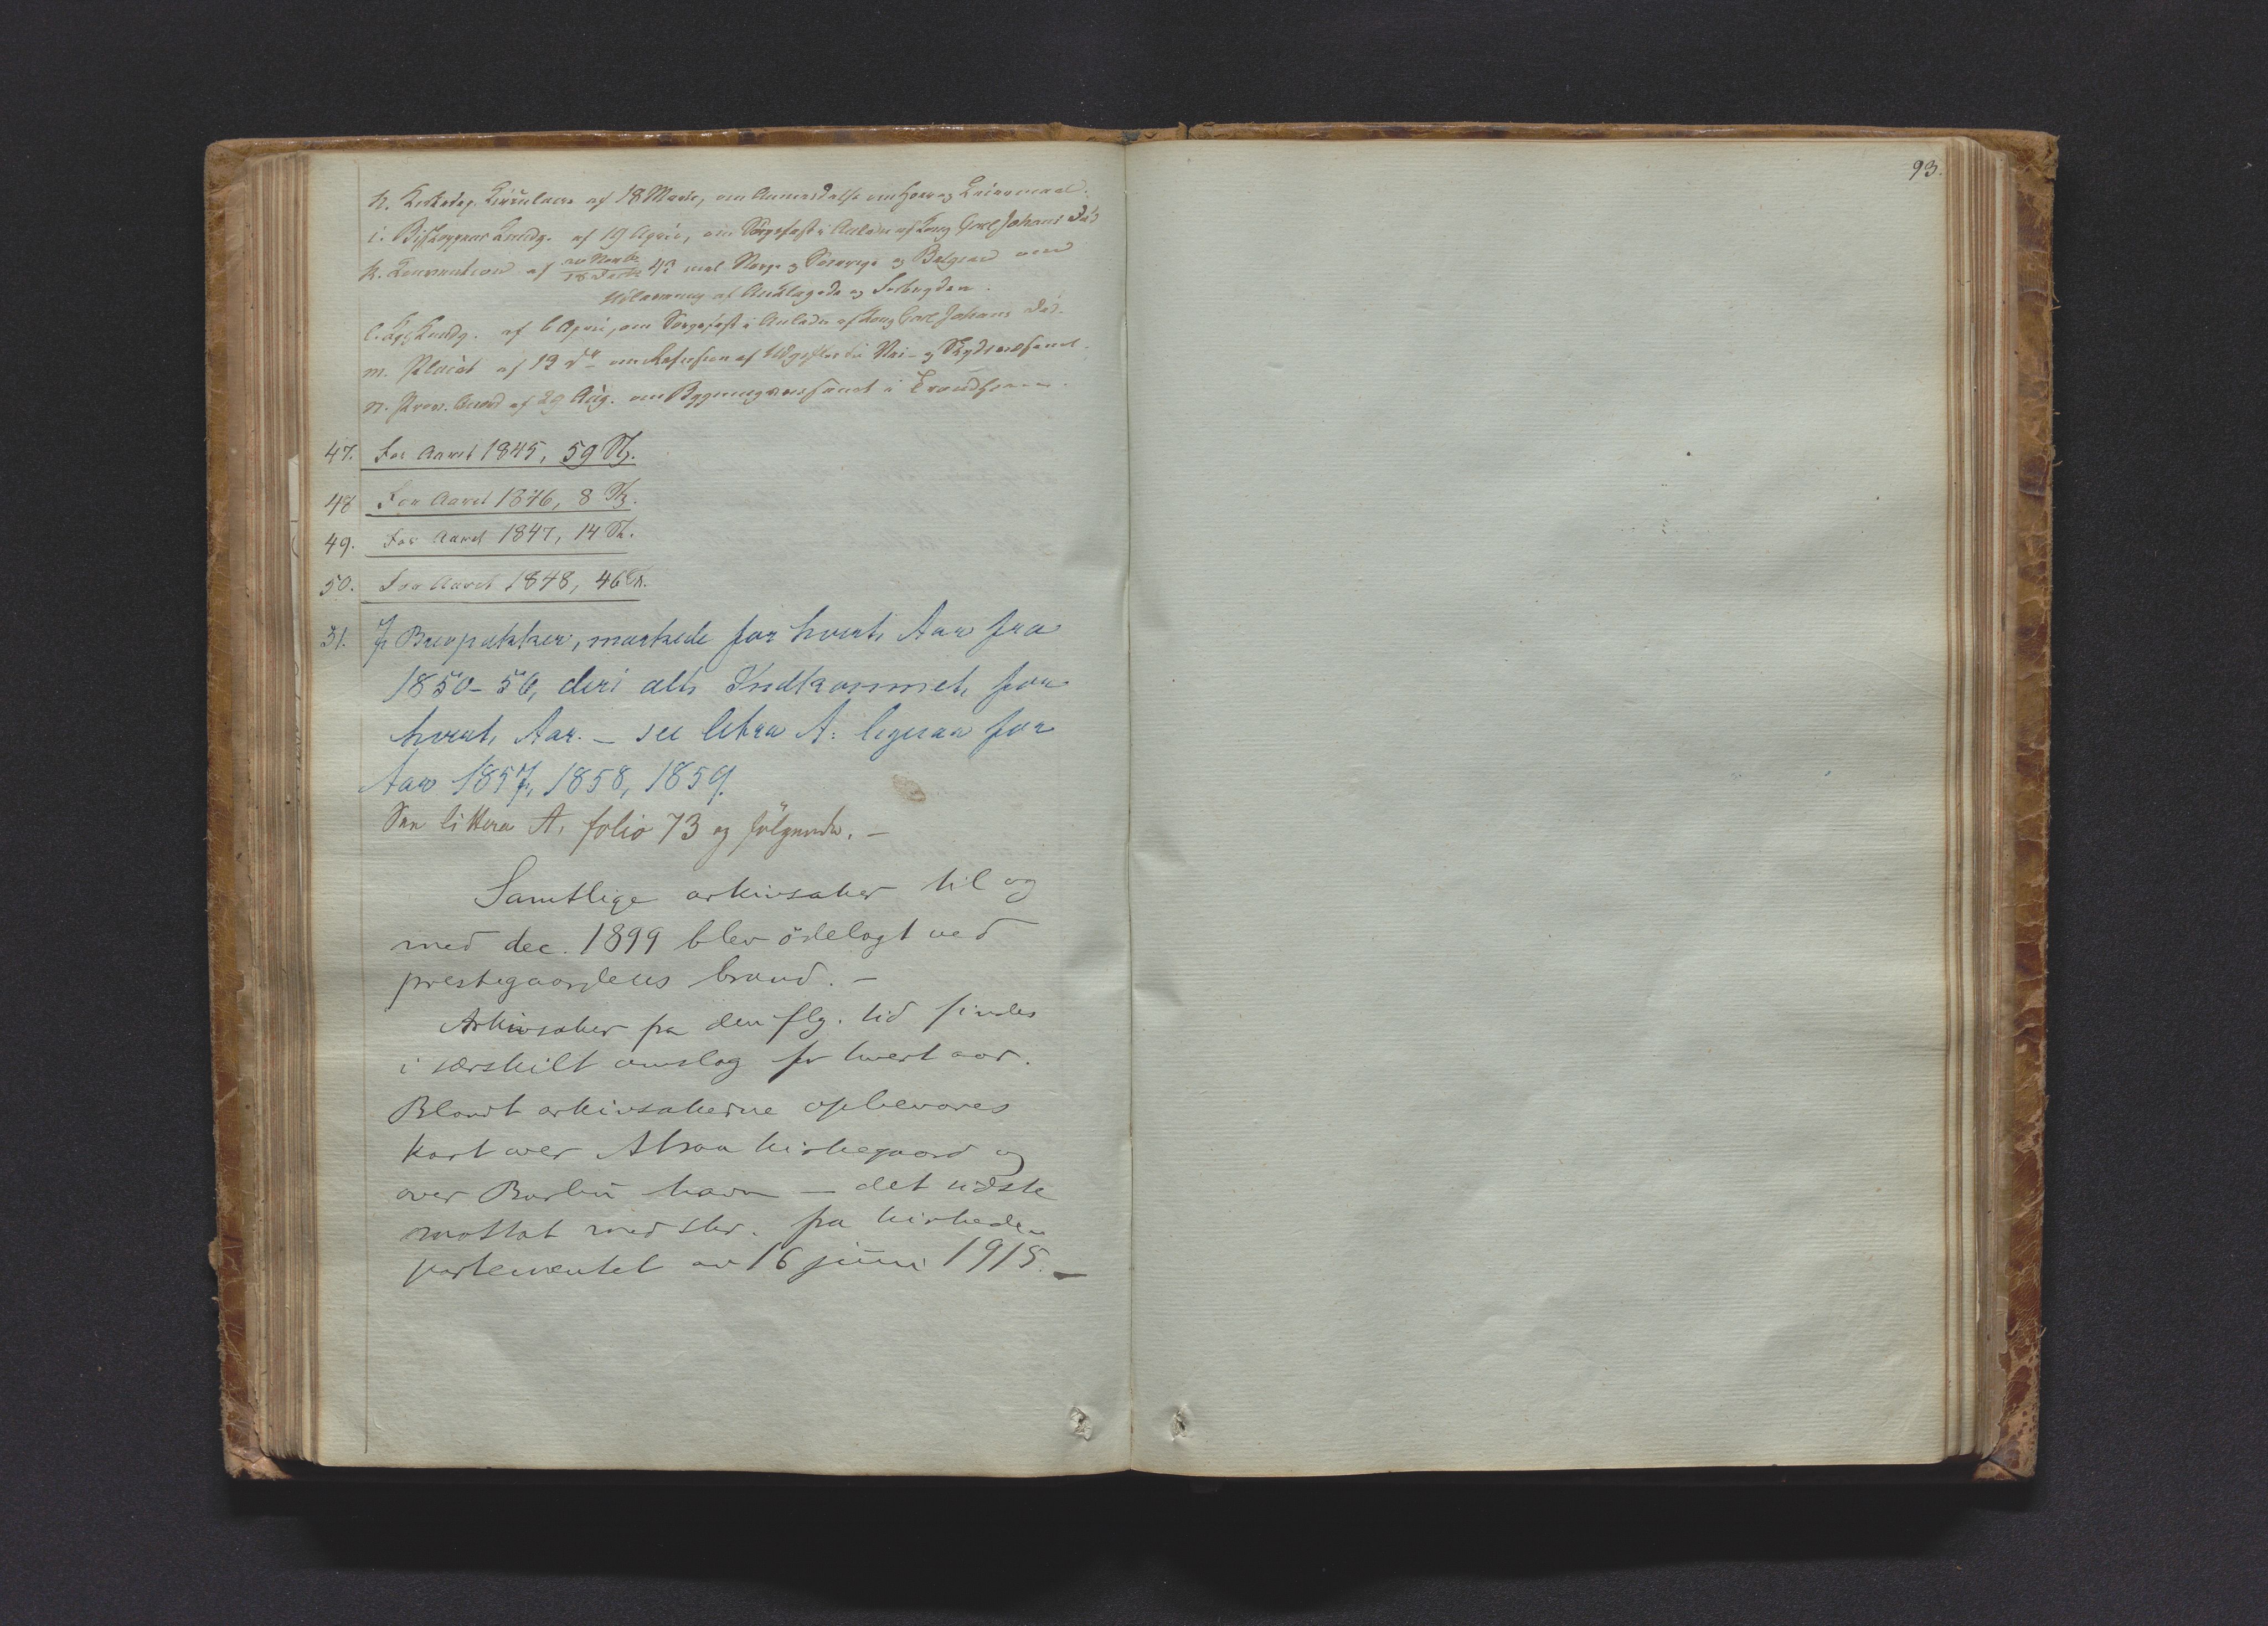 93.
h. Kirkedep. Circulaire af 18 Marts, om Anmeldelse om Hoer og Leiermaal.
i. Biskoppens Kundg. af 19 April, om Sørgefest i Anledn. af Kong Carl Johans Død
k. Convention af 20 Novbr 18 Decbr 43 mel. Norge og Sverrige og Belgien om
Udlevering af Anklagede og Forbrydere.
l. Kundg. af 6 April, om Sørgefest i Anledn. af Kong Carl Johans Død.
m. Placat af 19 dº om Refusion af Udgifter til Vei- og Skydsvæsenet.
n. Prov. Anord af 29 Aug. om Bygningsvæsenet i Trondhjem.
47. For Aaret 1845, 59 St.
48 For Aaret 1846, 8 St.
49. For Aaret 1847, 14 St.
50. For Aaret 1848, 46 St.
51. 7 Brevpakker, mærkede for hvert Aar fra
1850-56, deri alt Indkommet for
hvert Aar. – see litra A: ligesaa for
Aar 1857, 1858, 1859.
See littera A, folio 73 og følgende. –
Samtlige arkivsaker til og
med dec. 1899 blev ödelagt ved
prestegaardens brand. –
Arkivsaker fra den flg. tid findes
i særskilt omslag for hvert aar.
Blandt arkivsakerne opbevares
kart over Alsaa kirkegaard og
over Barbu havn – det sidste
mottat med skr. fra kirkede-
partementet av 16 juni 1915. –